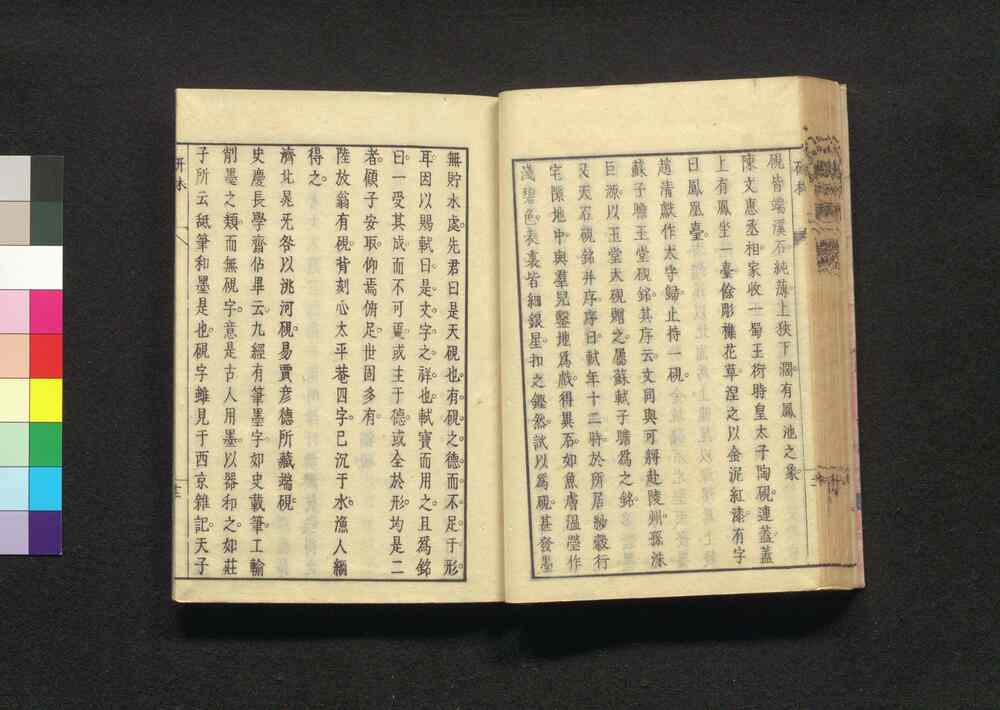 硯皆端溪石純薄上狹下濶有鳳池之象
陳文惠丞相家收一蜀王衍時皇太子陶硯連蓋蓋
上有鳳坐一臺餘彫雜花草涅之以金泥紅漆有字
曰鳳凰臺
趙清獻作太守歸止持一硯
蘇子瞻玉堂硯銘其序云文同與可將赴陵州孫洙
巨源以玉堂大硯贈之屬蘇軾子瞻爲之銘
又天石硯銘并序序曰軾年十二時於所居紗縠行
宅隙地中與羣兒鑿地爲戲得異石如魚膚溫瑩作
淺碧色表裏皆細銀星扣之鏗然試以爲硯甚發墨
無貯水處先君曰是天硯也有硯之德而不足于形
耳因以賜軾曰是文字之祥也軾寶而用之且爲銘
曰一受其成而不可更或主于德或全於形均是二
者顧子安取仰焉俯足世固多有
陸放翁有硯背刻心太平菴四字已沉于水漁人網
得之
濟北晁无咎以洮河硯易賈彦德所藏端硯
史慶長學齋佔畢云九經有筆墨字如史載筆工輸
削墨之類而無硯字意是古人用墨以器和之如莊
子所云舐筆和墨是也硯字雖見于西京雜記天子
研林
研林